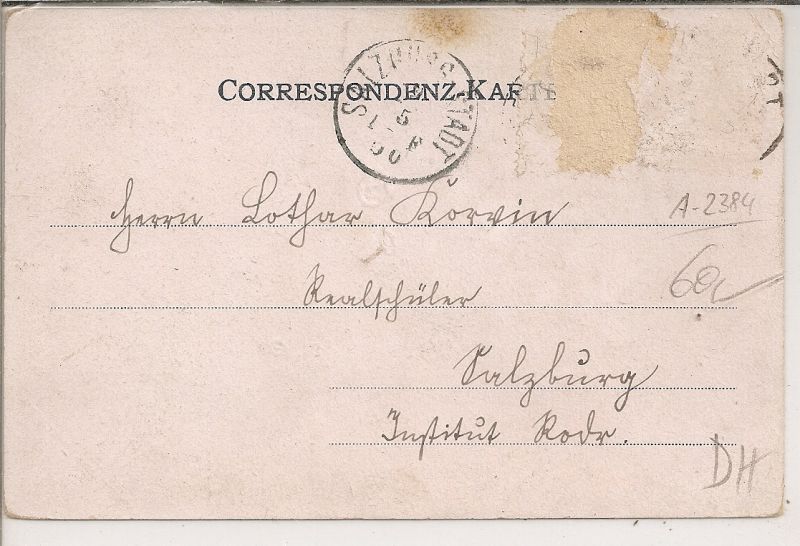 CORRESPONDENZ-KARTE
SALZBURG STADT
Herrn Lothar Korvin
A-2384
Realschüler
Salzburg
Institut Rodr.
DH